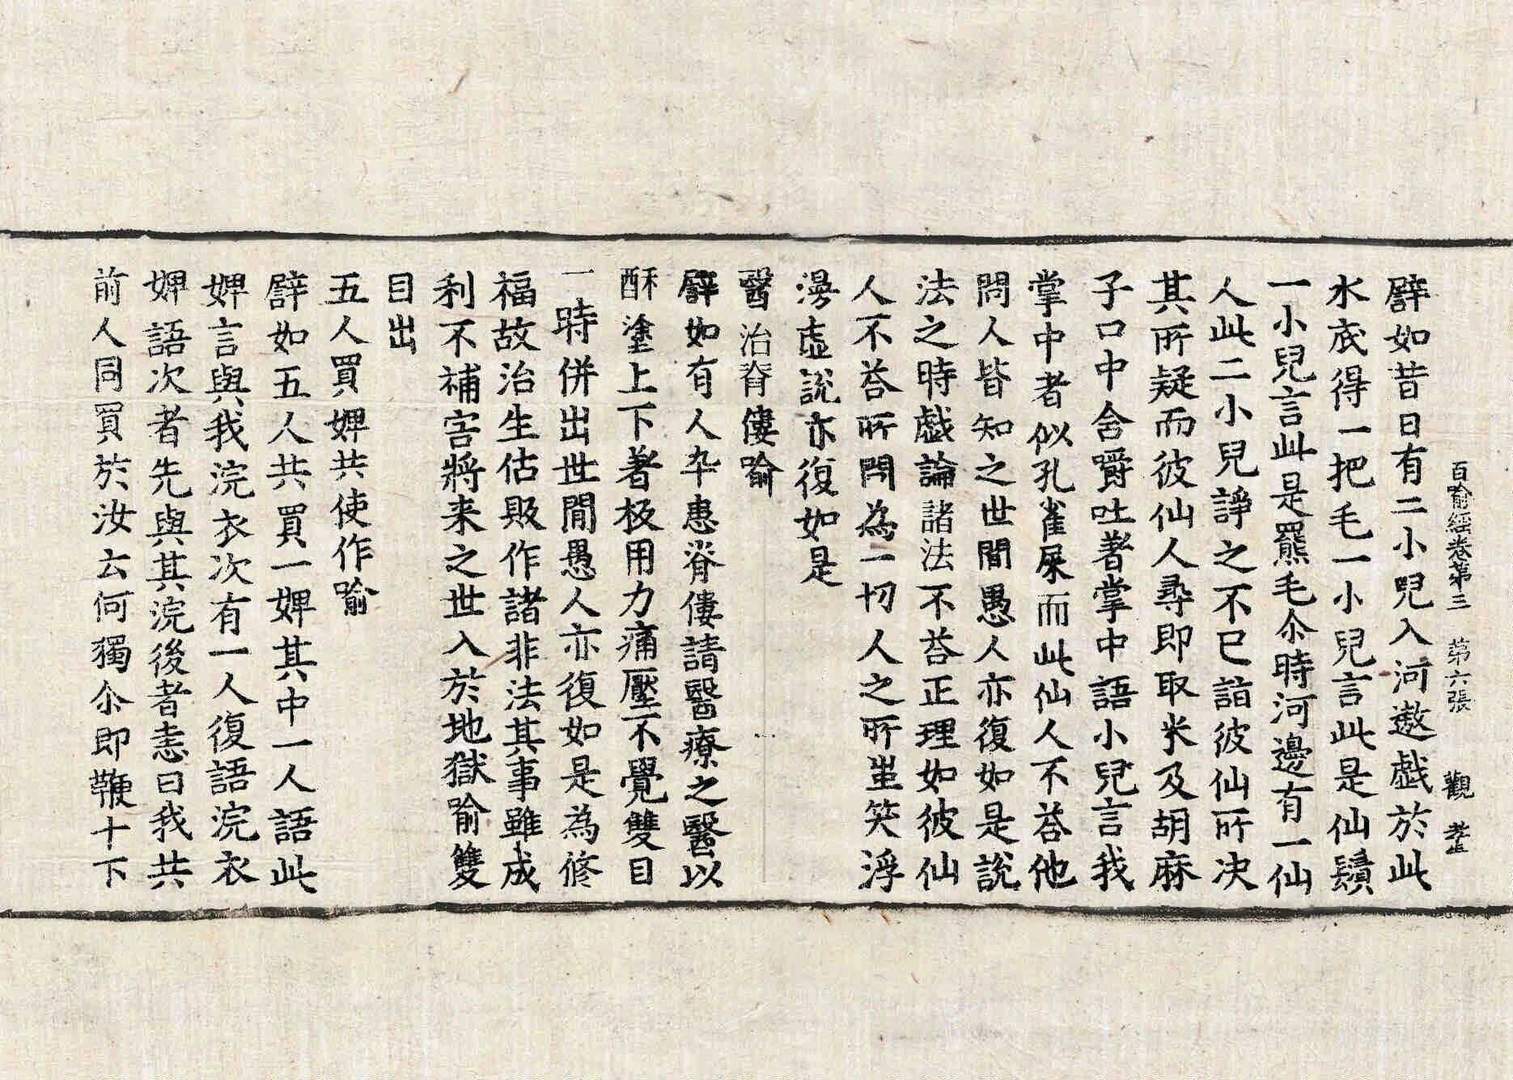 百喻經卷第三 第六張 觀
譬如昔日有二小兒入河遨戲於此
水底得一把毛一小兒言此是仙鬚
一小兒言此是羆毛尒時河邊有一仙
人此二小兒諍之不已詣彼仙所决
其所疑而彼仙人尋即取米及胡麻
子口中含嚼吐著掌中語小兒言我
掌中者似孔雀屎而此仙人不荅他
問人皆知之世間愚人亦復如是說
法之時戲論諸法不荅正理如彼仙
人不荅所問為一切人之所蚩笑浮
漫虛說亦復如是
醫治脊僂喻
譬如有人卒患脊僂請醫療之醫以
酥塗上下著板用力痛壓不覺雙目
一時併出世間愚人亦復如是為修
福故治生估販作諸非法其事雖成
利不補害將来之世入於地獄喻雙
目出
五人買婢共使作喻
譬如五人共買一婢其中一人語此
婢言與我浣衣次有一人復語浣衣
婢語次者先與其浣後者恚曰我共
前人同買於汝云何獨尒即鞭十下